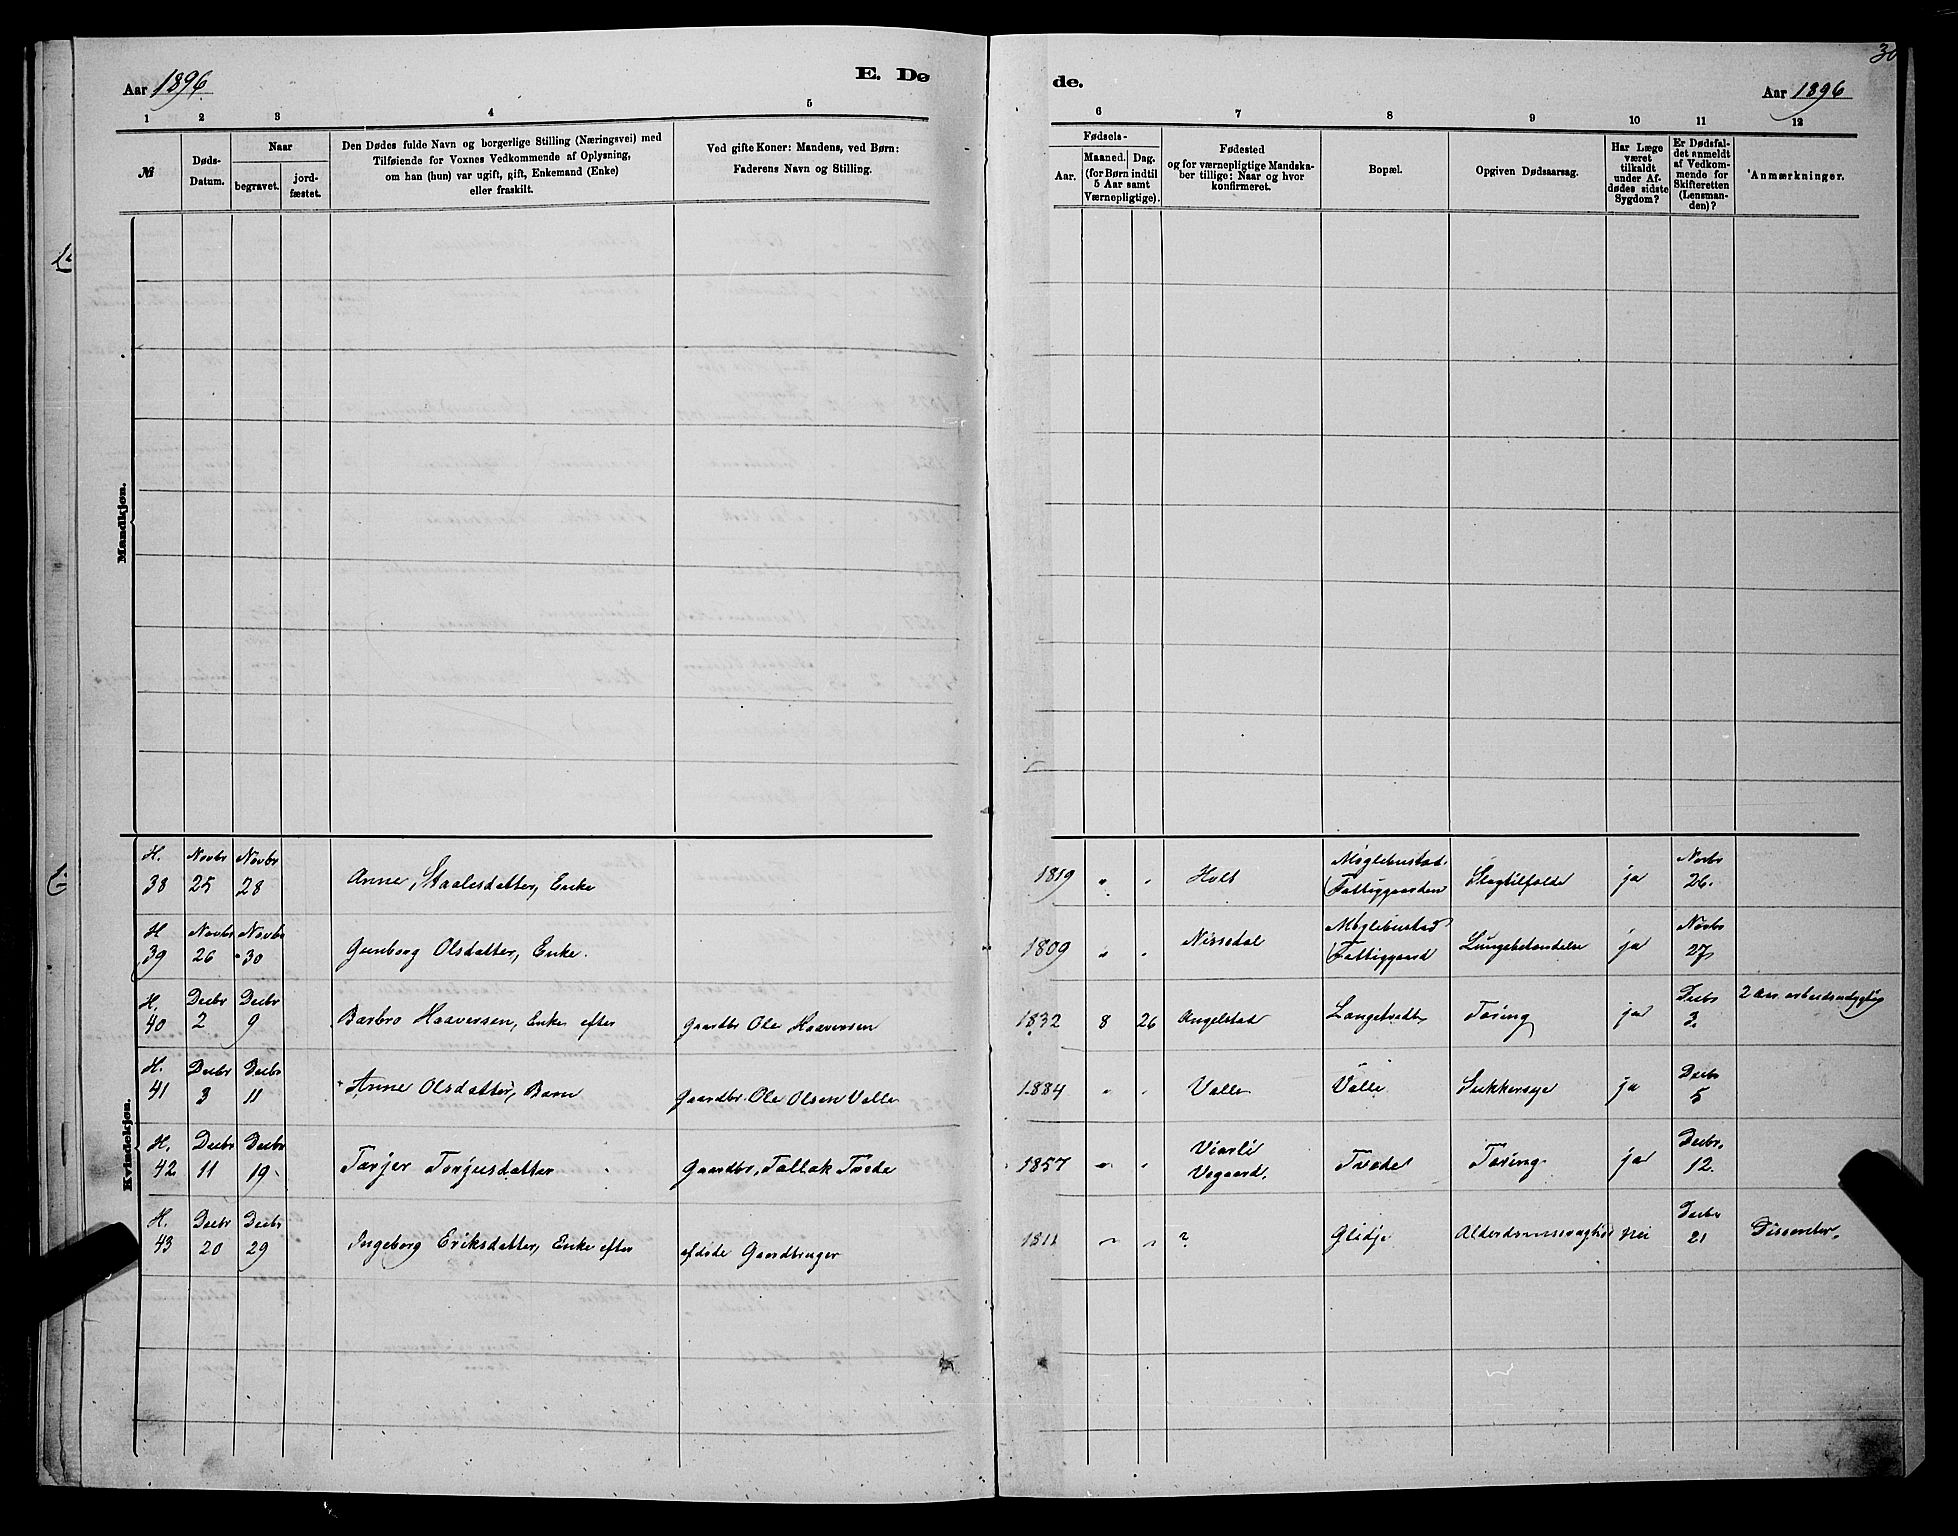 30
Aar 1896
E. Dø
de.
Aar 1896
1 2 3 4 5 6 7 8 9 10 11 12
№
Døds-
Datum.
Naar
begravet.
jord-
fæstet.
Den Dødes fulde Navn og borgerlige Stilling (Næringsvei) med
Tilføiende for Voxnes Vedkommende af Oplysning,
om han (hun) var ugift, gift, Enkemand (Enke)
eller fraskilt.
Ved gifte Koner: Mandens, ved Børn:
Faderens Navn og Stilling.
Fødsels-
Aar.
Maaned. Dag.
(for Børn indtil
5 Aar samt
Værnepligtige).
Fødested
og for værnepligtige Mandska-
ber tillige: Naar og hvor
konfirmeret.
Bopæl.
Opgiven Dødsaarsag.
Har Læge
været
tilkaldt
under Af-
dødes sidste
Sygdom?
Er Dødsfal-
det anmeldt
af Vedkom-
mende for
Skifteretten
(Lensman-
den)?
Anmærkninger.
Mandkjøn.
Kvindekjøn.
H. Novbr Novbr Møglebustad Novbr
38 25 28 Anne Staalesdatter, Enke 1819 " " Holt Fattiggaarden Slagtilfælde ja 26.
H Novbr Novbr Møglebustad Novbr
39 26 30 Gunborg Olsdatter, Enke. 1809 " " Nissedal Fattiggaard Lungebetændelse ja 27
H. Decbr Decbr Decbr
40 2 9 Barbro Haaversen, Enke efter Gaardbr Ole Haaversen 1832 8 26 Angelstad Langetvedt Tæring ja 3. 2 Aar
H. Decbr Decbr Decbr
41 3 11 Anne Olsdatter, Barn Gaardbr. Ole Olsen Valle 1884 " " Valle Valle Sukkersyge ja 5
H. Decbr Decbr Decbr.
42 11 19 Tarjer Torjusdatter Gaardbr. Tallak Tvede 1857 " " Vierli Vegaard. Tvede Tæring ja 12.
H. Decbr Decbr Decbr
43 20 29 Ingeborg Eriksdatter, Enke efter afdøde Gaardbruger 1811 " " ? Glidje Alderdomssvaghed Nei 21 Dissenter.